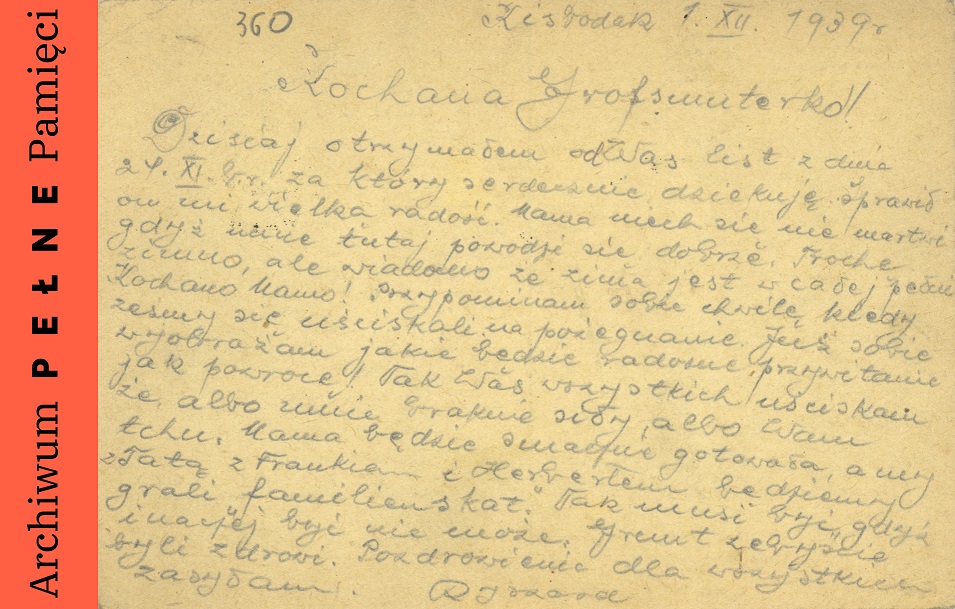 Archiwum PEŁNE Pamięci
360
Kisbodak 1. XII. 1939r
Kochana Grofsmuterko!
Dzisiaj otrzymałem od Was list z dnia
24. XI. br. za który serdecznie dziękuję. Sprawił
on mi wielka radość. Mama niech się nie martwi
gdyż mnie tutaj powodzi się dobrze. Troche
zimno, ale wiadomo że zima jest w całej pełni
Kochano Mamo! Przypominam sobie chwilę kiedy
żeśmy się uściskali na pożegnanie. Już sobie
wyobrażam jakie będzie radosne przywitanie
jak powrócę! Tak Was wszystkich uściskam
że albo mnie braknie siły, albo Wam
tchu. Mama będzie smacznie gotowała, a my
z Tatą z Frankiem i Herbertem będziemy
grali familienskat. Tak musi być, gdyż
inaczej być nie może. Grunt żebyście
byli zdrowi. Pozdrowienia dla wszystkich
zasyłam. Ryszard